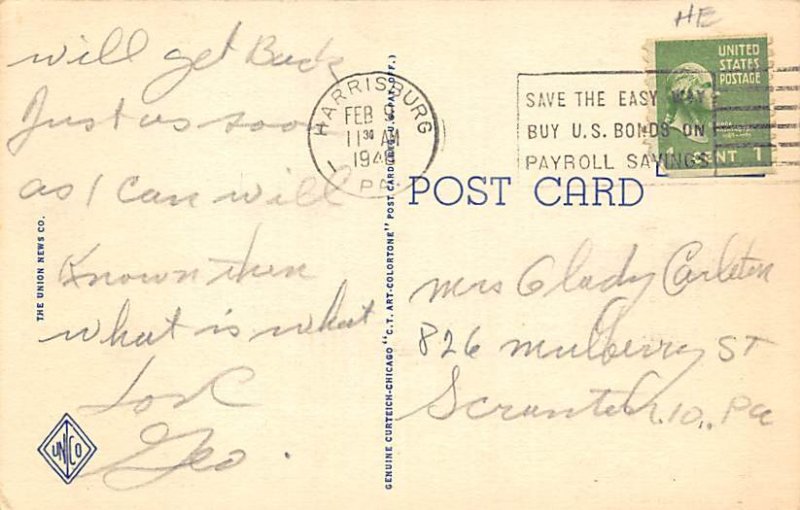 will get Back
Just as soon
as I can will
Known then
what is what
Love
Geo.
THE UNION NEWS CO.
UNCO
GENUINE CURTEICH-CHICAGO "C.T. ART-COLORTONE" POST CARD (REG. U.S. PAT. OFF.)
HE
HARRISBURG
FEB 9
11 30 AM
194
PA.
1
SAVE THE EASY WAY
BUY U.S. BONDS ON
PAYROLL SAVINGS
UNITED
STATES
POSTAGE
1 CENT 1
POST CARD
Mrs Glady Carleton
826 Mulberry ST
Scranton 10, Pa